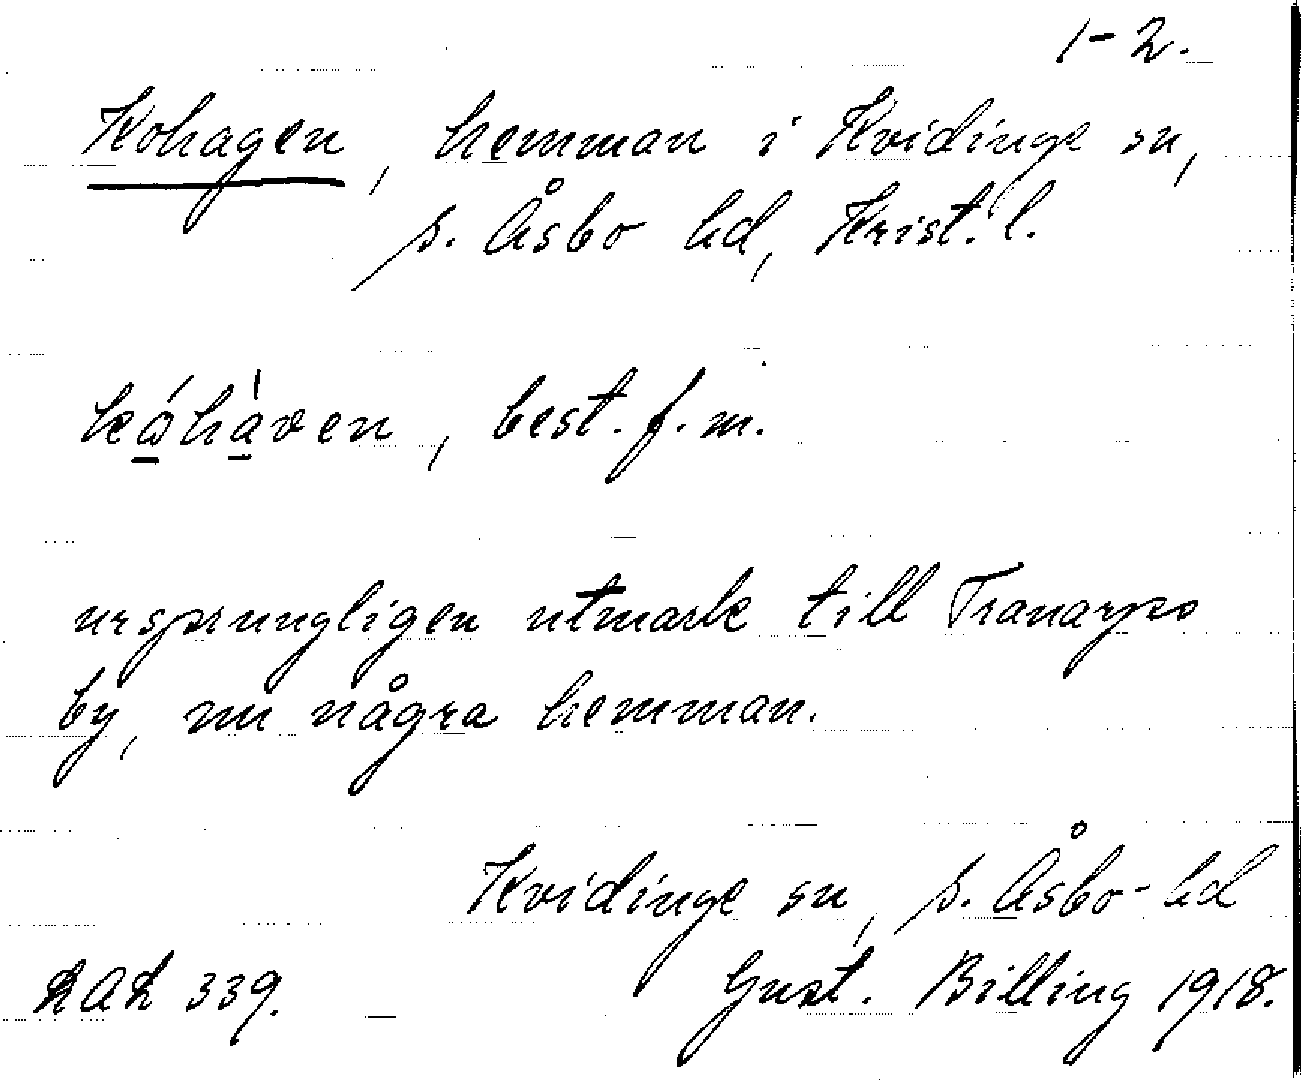 1-2.
Kohagen, hemman i Kvidinge sn,
s. Åsbo hd, Krist. l.
best. f. m.
ursprungligen utmark till Tranarps
by, nu några hemman.
Kvidinge sn, s. Åsbo-hd
339. Gust. Billing 1918.